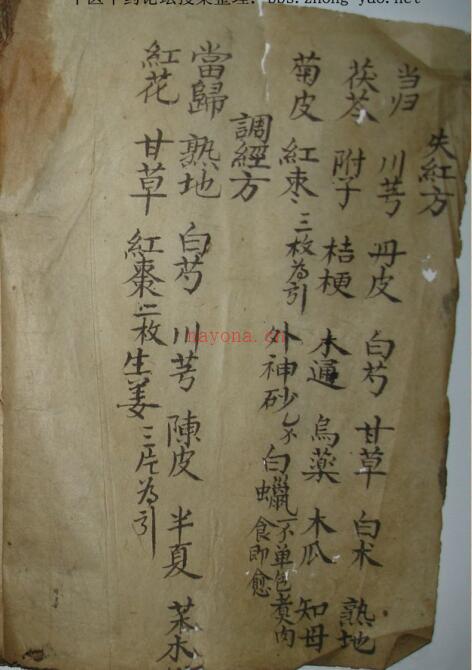 中医中药论坛搜集整理: bbs.zhong-yao.net
失紅方
当归 川芎 丹皮 白芍 甘草 白术 熟地
茯苓 附子 桔梗 木通 烏薬 木瓜 知母
菊皮 紅枣三枚為引 外神砂乙不 白蠟一不单包煮肉食即愈
調經方
當歸 熟地 白芍 川芎 陳皮 半夏
紅花 甘草 紅棗二枚 生姜三片為引
nayona.cn